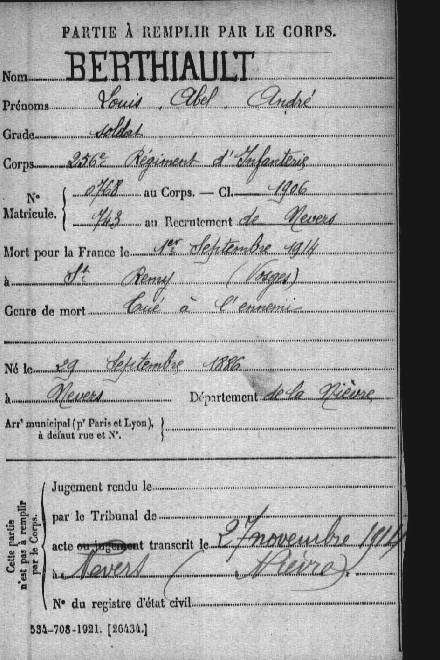 PARTIE À REMPLIR PAR LE CORPS.
Nom BERTHIAULT
Prénoms Louis, Abel, André
Grade soldat
Corps 256e Régiment d'Infanterie
N° Matricule. { 0768 au Corps. — Cl. 1906
743 au Recrutement de Nevers
Mort pour la France le 1er Septembre 1914
à St Remy (Vosges)
Genre de mort Tué à l'ennemi
Né le 29 Septembre 1886
à Nevers Département de la Nièvre
Arrt municipal (pr Paris et Lyon), à défaut rue et N°. }
Cette partie n'est pas à remplir par le Corps.
Jugement rendu le
par le Tribunal de
acte ou jugement transcrit le 27 novembre 1914
à Nevers (Nièvre).
N° du registre d'état civil
534-708-1921. [26434.]